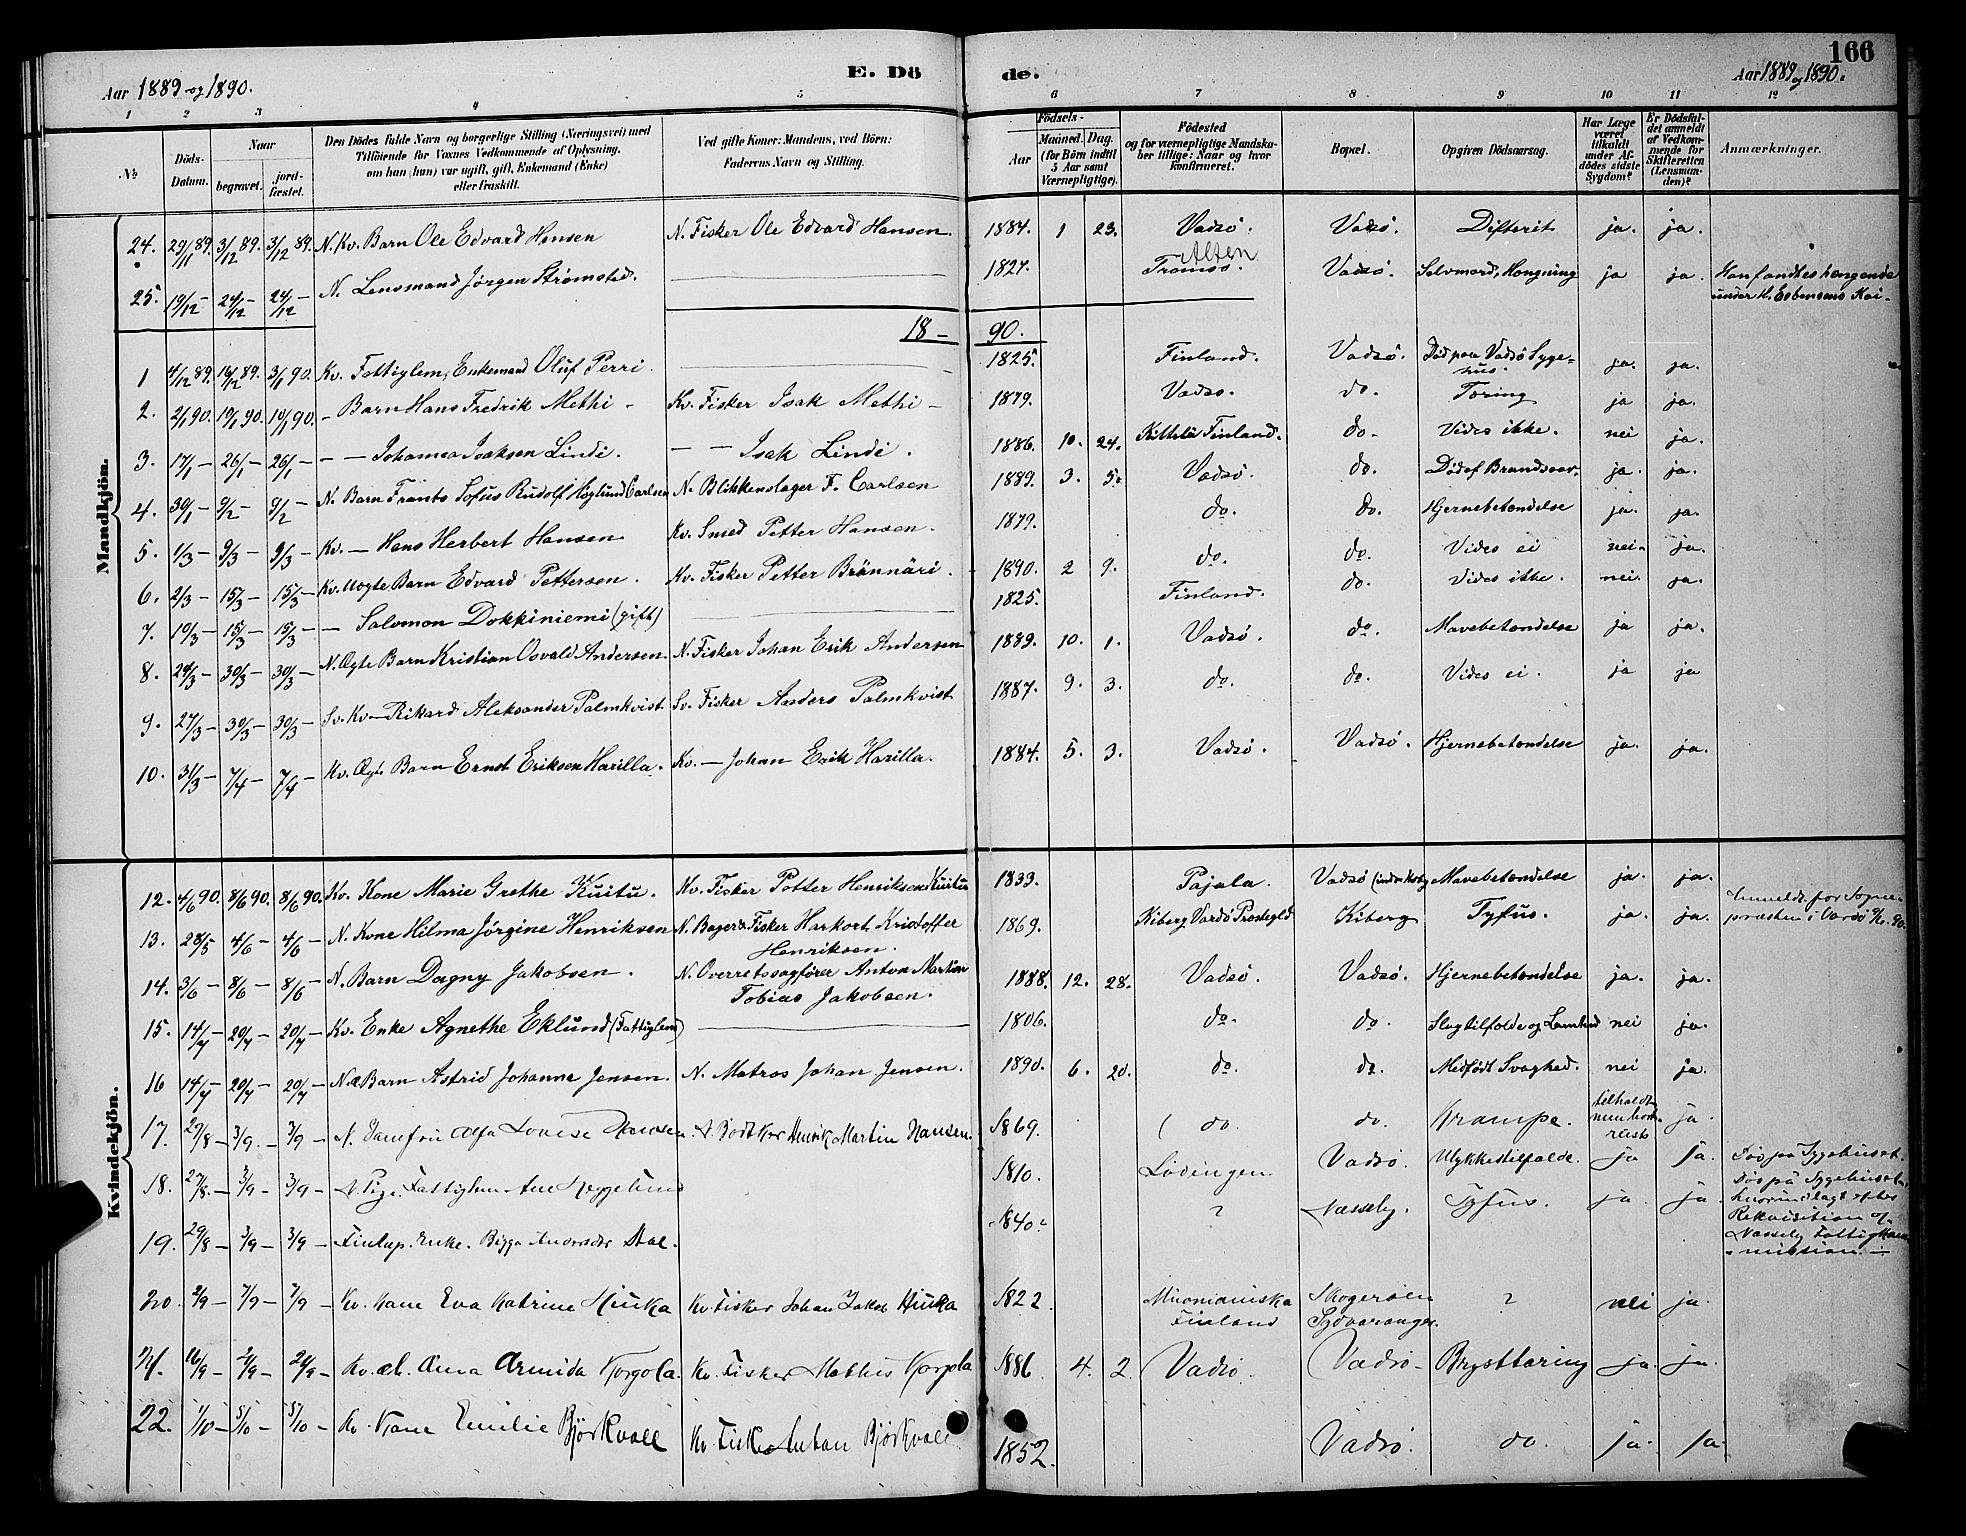 Aar 1889 og 1890.
E. Dö
de.
Aar 1889 og 1890.
166
1 2 3 4 5 6 7 8 9 10 11 12
No
Döds-Datum.
Naar
begravet.
jordfæstet.
Den Dödes fulde Navn og borgerlige Stilling (Næringsvei) med
Tilföiende for Voxnes Vedkommende af Oplysning,
om han (hun) var ugift, gift, Enkemand (Enke)
eller fraskilt.
Ved gifte Koner: Mandens, ved Börn:
Faderens Navn og Stilling.
Födsels-
Aar
Maaned. Dag.
(for Börn indtil
5 Aar samt
Værnepligtige).
Födested
og for værnepligtige Mandskaber tillige: Naar og hvor
konfirmeret.
Bopæl.
Opgiven Dödsaarsag.
Har Læge
været
tilkaldt
under Afdödes sidste
Sygdom?
Er Dödsfaldet anmeldt
af Vedkommende for
Skifteretten
(Lensmanden)?
Anmærkninger.
Mandkjön.
24. 29/11 89. 3/12 89. 3/12 89. N. Kv. Barn Ole Edvard Hansen N. Fisker Ole Edvard Hansen. 1884. 1 23. Vadsö. Vadsö. Difterit ja. ja.
25. 19/12 – 24/12 – 24/12 – N. Lensmand Jörgen Strömsted. 1827. Tromsö. Alten Vadsö. Selvmord, Hængning ja ja. Han fandtes hængende
under H. Esbensens Kai –
18 – 90.
1 4/12 89. 14/12 89. 3/1 90. Kv. Fattiglem, Enkemand Oluf Perri. 1825. Finland. Vadsö. Död paa Vadsö Sygehus. ja. ja.
2. 2/1 90. 19/1 90. 19/1 90. – Barn Hans Fredrik Methi – Kv. Fisker Isak Methi – 1879. Vadsö. do. Tæring ja ja.
3. 17/1 – 26/1 – 26/1 – – – Johannes Isaksen Lindi. – – Isak Lindi. 1886. 10. 24. Kittilä Finland. do. Vides ikke. nei ja.
4. 30/1 – 9/2 – 9/2 – N. Barn Frants Sofus Rudolf Höglund Carlsen N. Blikkenslager F. Carlsen 1889. 3. 5. Vadsö. do. Död af Brandsaar. ja. ja.
5. 1/3 – 9/3 – 9/3 – Kv. – Hans Herbert Hansen Kv. Smed Petter Hansen. 1879. do. do. Hjernebetændelse ja. ja.
6. 2/3 – 15/3 – 15/3 – Kv. Uægte Barn Edvard Pettersen. Kv. Fisker Petter Brännäri. 1890. 2 9. do. do. Vides ei nei. ja.
7. 10/3 – 15/3 – 15/3 – – Salomon Dokkiniemi (gift) 1825. Finland. do. Vides ikke. nei. ja.
8. 24/3 – 30/3 – 30/3 – N. Ægte Barn Kristian Osvald Andersen. N. Fisker Johan Erik Andersen 1889. 10. 1. Vadsö. do. Mavebetændelse ja ja.
9. 27/3 – 30/3 – 30/3 – Sv. Kv – Rikard Aleksander Palmkvist Sv. Fisker Anders Palmkvist 1887. 9. 3. do. do. Vides ei. ja ja
10. 31/3 – 7/4 – 7/4 – Kv. Ægte Barn Ernst Eriksen Harilla. Kv. – Johan Erik Harilla. 1884. 5. 3. Vadsö. Vadsö. Hjernebetændelse ja. ja.
Kvindekjön.
12. 4/6 90. 8/6 90. 8/6 90. Kv. Kone Marie Grethe Kuitu. Kv. Fisker Petter Henriksen Kuitu 1833. Pajala. Vadsö Mavebetændelse ja. ja.
13. 28/5 – 4/6 – 4/6 – N. Kone Hilma Jörgine Henriksen N. Bager & Fisker Harkort Kristoffer
Henriksen. 1869. Kiberg Vardö Prestegld Kiberg Tyfus. ja. ja. Anmeldt for Sognepræsten i Vardö
14. 3/6 – 8/6 – 8/6 – N. Barn Dagny Jakobsen. N. Overretssagförer Anton Martin
Tobias Jakobsen. 1888. 12. 28. Vadsö. Vadsö. Hjernebetændelse ja. ja.
15. 14/7 – 20/7 – 20/7 – Kv. Enke Agnethe Eklund (Fattiglem) 1806. do. do. Slagtilfælde og Lamhed nei ja.
16 14/7 – 20/7 – 20/7 – N. Æ Barn Astrid Johanne Jensen. N. Matros Johan Jensen. 1890. 6. 20. do. do. Medfödt Svaghed. nei ja.
17. 29/8 – 3/9. – 3/9 – N. Jomfru Alfa Lovise Hansen. Henrik Martin Hansen. 1869. do. do. Krampe. tilkaldt ja.
18. 27/8. – 3/9 – 3/9 – N Pige. Fattiglem Ane 1810. Lödingen. Vadsö. Ulykkestilfælde. ja ja. Död på Sygehuset.
19. 29/8 – 3/9 – 3/9 – Finlap. Enke. Bigga Andersdr Stal. 1840. ? Næsseby. Tyfus. ja. ja Död på Sygehuset,
hvor indlagt efter
Rekvisition af
Næsseby Fattigkommission. –
20. 2/9 – 7/9 – 7/9 – Kv. Kone Eva Katrine Hiuka Kv. Fisker Johan Jakob Hiuka 1822. Muonioniska
Finland Skogeröen
Sydvaranger. ? nei ja.
21. 16/9 – 21/9 – 21/9 – Kv. æb. Anna Armida Korgola. Kv. Fisker Mathis Korgola 1886. 4. 2. Vadsö. Vadsö – Brysttæring ja. ja.
22. 1/10 – 5/10 – 5/10 – Kv. Kone Emilie Björkvall Kv. Fisker Anton Björkvall 1852. Vadsö. do. ja. ja.